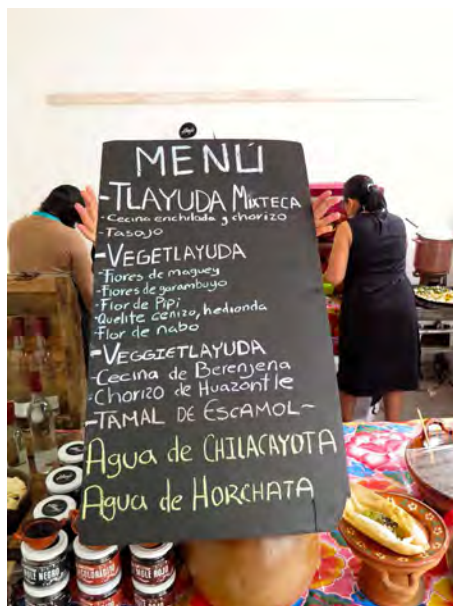 MENÚ
-TLAYUDA MIXTECA
-Cecina enchilada y chorizo
-Tasajo
-VEGETLAYUDA
-Flores de maguey
-Flores de garambuyo
-Flor de Pipi
-Quelite cenizo, hedionda
-Flor de nabo
-VEGGIETLAYUDA
-Cecina de Berenjena
-Chorizo de Huazontle
-TAMAL DE ESCAMOL-
Agua de CHILACAYOTA
Agua de HORCHATA
MOLE NEGRO
COLORADITO
MOLE ROJO